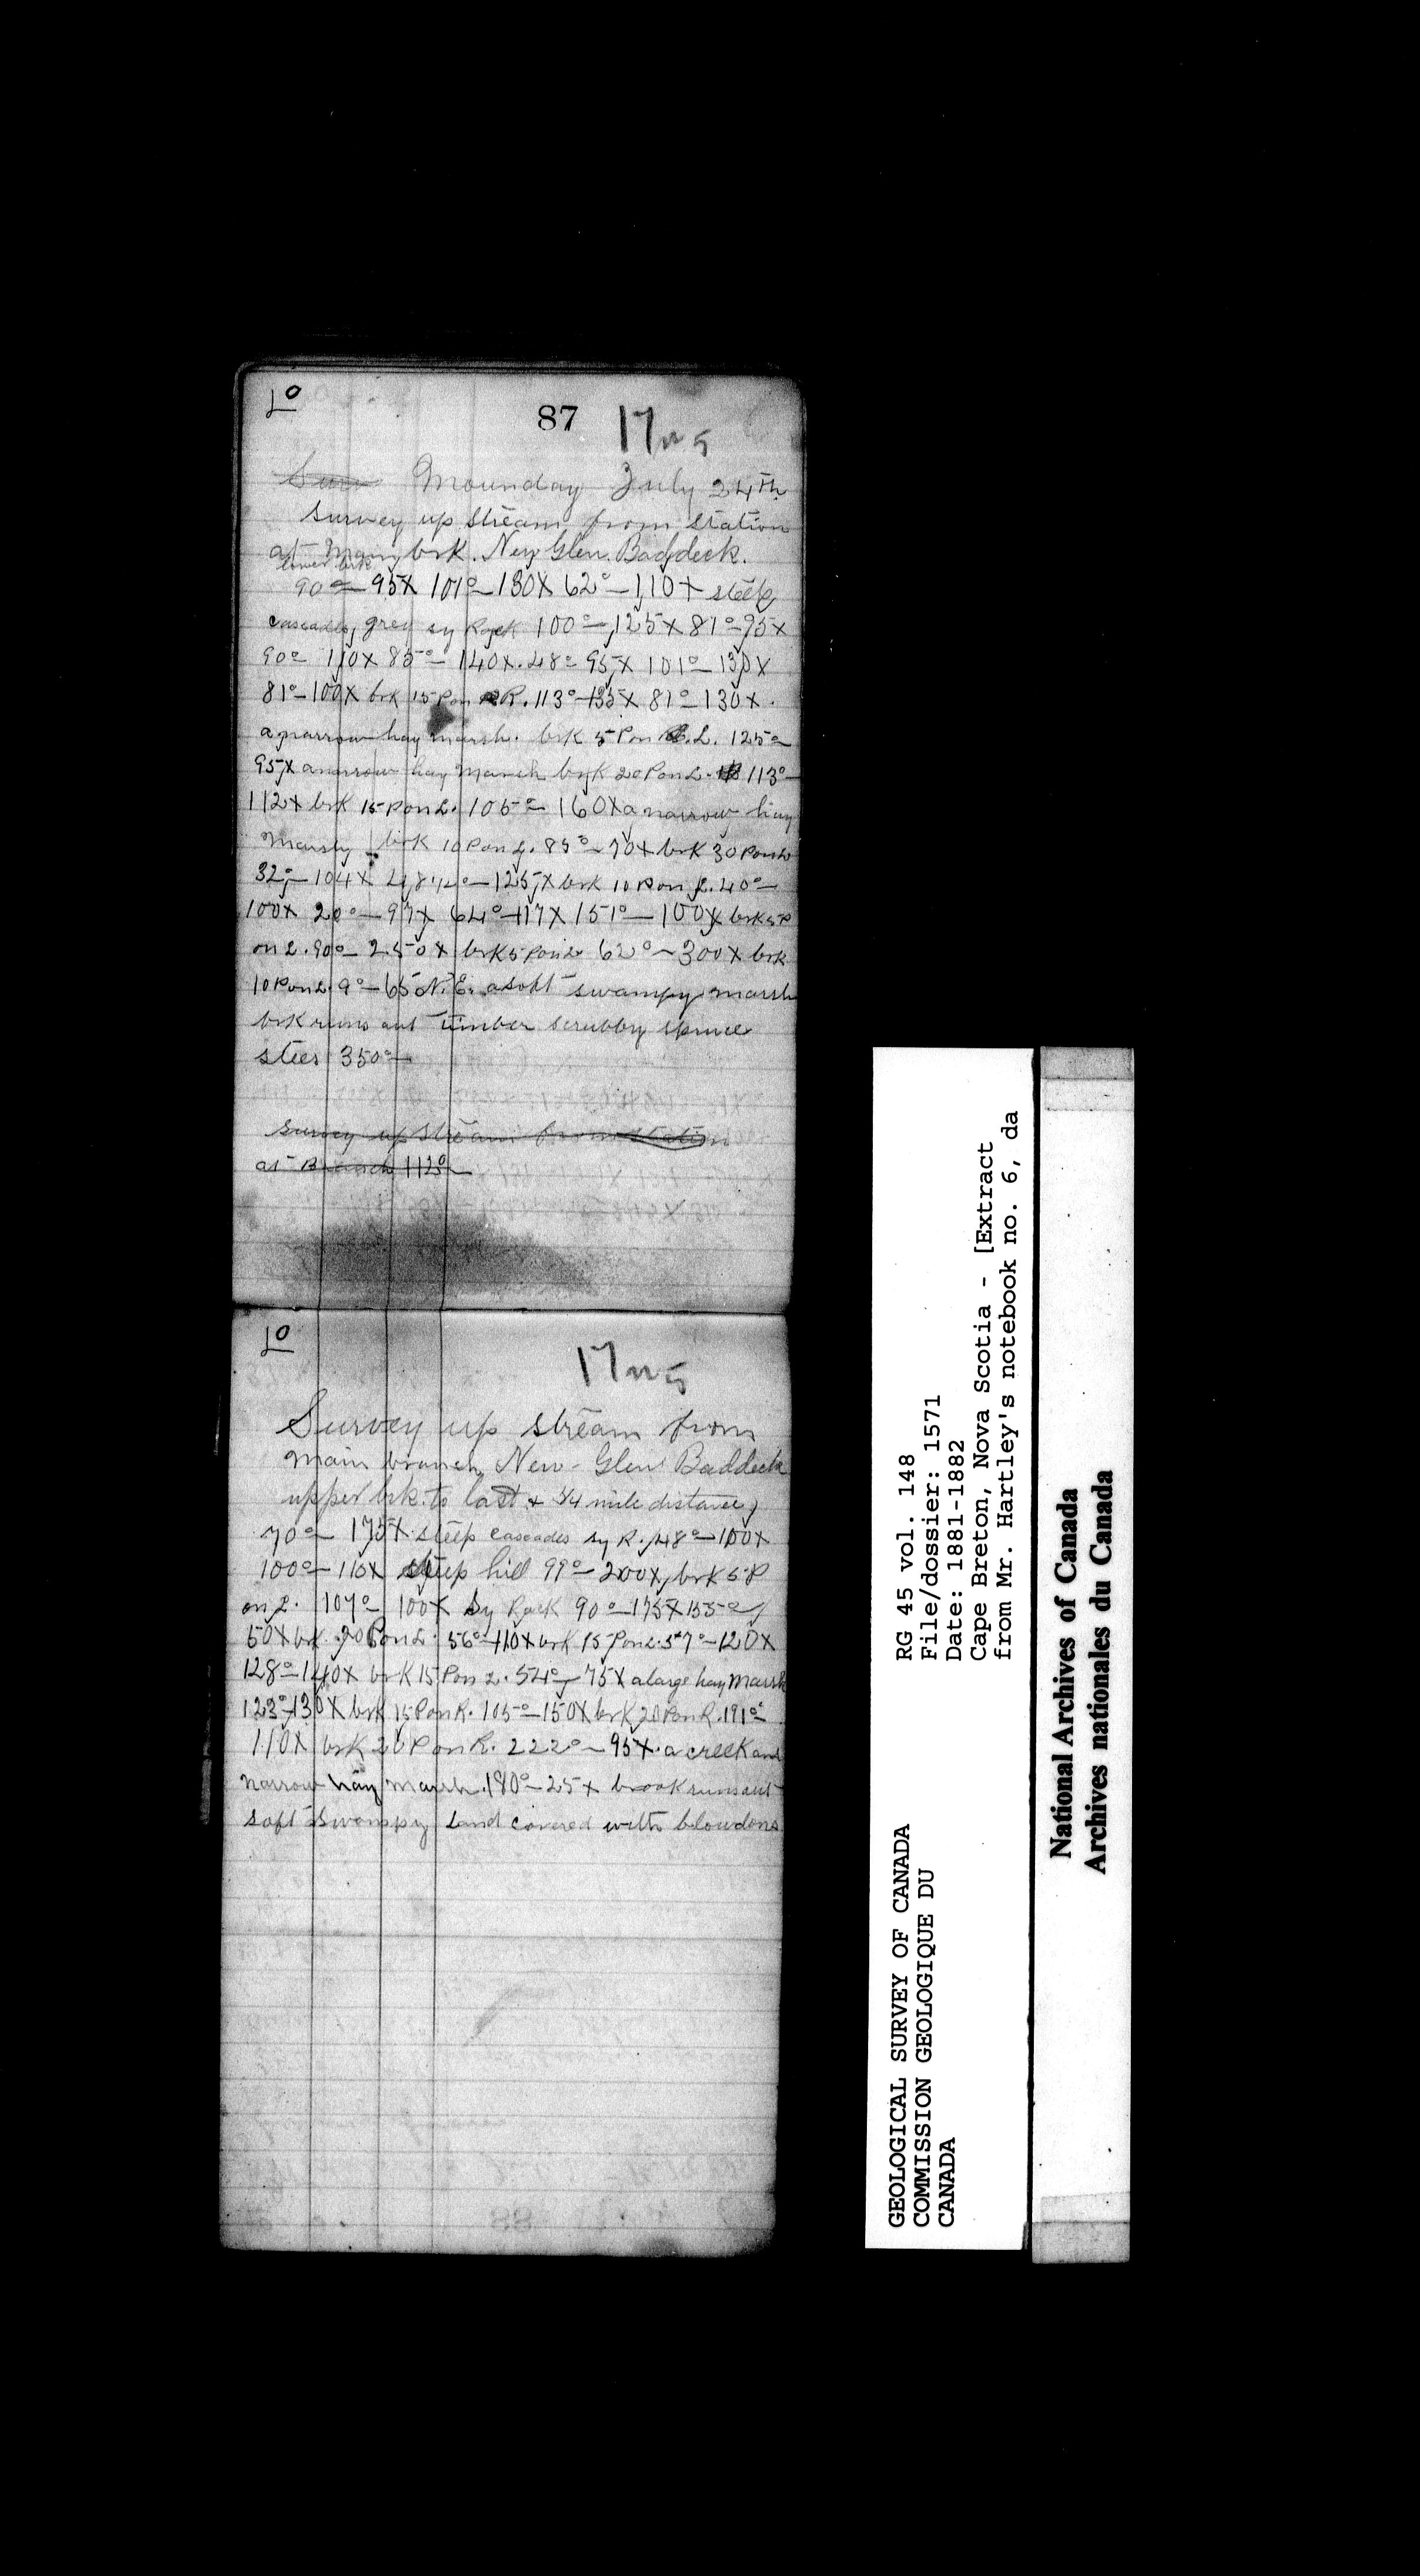 10
87
17 n 5
Mounday July 24th
survey up stream from station
at Main brk. New Glen. Baddeck.
lower brk
90°— 95X 101°— 130X 62°— 110X steep
cascades, grey sy Rock 100°— 125X 81°— 95X
90° 110X 85°— 140X. 48° 95X 101°— 130X
81°— 100X brk 15 P on R. 113°—135X 81°— 130X.
a narrow hay marsh. brk 5 P on L. 125°
95X a narrow hay marsh brk 20 P on L. 113°—
112X brk 15 P on L. 105°— 160X a narrow hay
Marsh brk 10 P on L. 85°— 70X brk 30 P on L
32°— 104X °— 125X brk 10 P on L. 40°—
100X 20°— 97X 64°—117X 151°— 100X brk 5 P
on L. 90°— 250X brk 5 P on L 62°— 300X brk
10 P on L. 9°— 65 N. E. a soft swampy marsh
brk runs out timber scrubby spruce
steer 350°—
survey up stream from station
at Branch 112°—
10
17 n 5
Survey up stream from
main branch New Glen Baddeck
upper brk. to last 3/4 mile distance,
70°— 175X steep cascades sy R. 48°— 100X
100°— 115X steep hill 99°— 200X, brk 5 P
on L. 107°— 100X Sy Rock 90°— 175X 155°
50X brk. 20 P on L. 56°—110X brk 15 P on L. 57°— 120X
128°— 140X brk 15 P on L. 54°— 75X a large hay Marsh
123°—130X brk 15 P on R. 105°— 150X brk 20 P on R. 191°
110X brk 20 P on R. 222°— 95X. a creek and
narrow hay marsh. 180°— 25X brook runs out
soft swampy land covered with blowdons
GEOLOGICAL SURVEY OF CANADA
COMMISSION GEOLOGIQUE DU
CANADA
RG 45 vol. 148
File/dossier: 1571
Date: 1881-1882
Cape Breton, Nova Scotia - [Extract
from Mr. Hartley's notebook no. 6, da
National Archives of Canada
Archives nationales du Canada